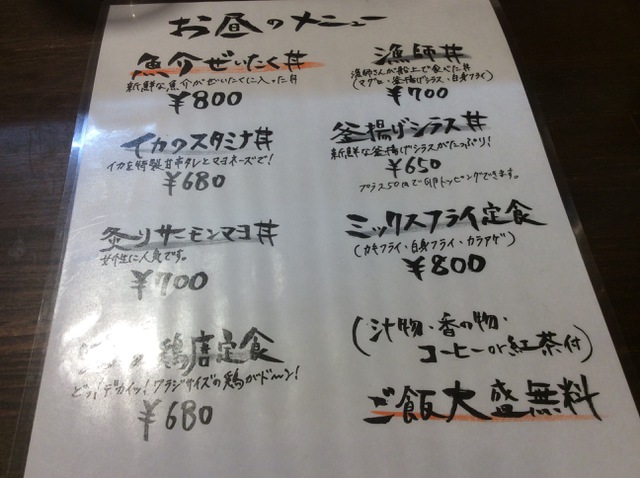 お昼のメニュー
魚介ぜいたく丼
新鮮な魚介がぜいたくに入った丼
¥800
漁師丼
漁師さんが船上で食べた丼
(マグロ・釜揚げシラス・白身フライ)
¥700
イカのスタミナ丼
イカを特製甘辛タレとマヨネーズで!
¥680
釜揚げシラス丼
新鮮な釜揚げシラスがたっぷり!
¥650
プラス50円で卵トッピングできます。
炙りサーモンマヨ丼
女性に人気です。
¥700
ミックスフライ定食
(カキフライ・白身フライ・カラアゲ)
¥800
鶏唐定食
どッ!デカイッ!ワラジサイズの鶏がドーン!
¥680
(汁物・香の物・
コーヒーor紅茶付)
ご飯大盛無料